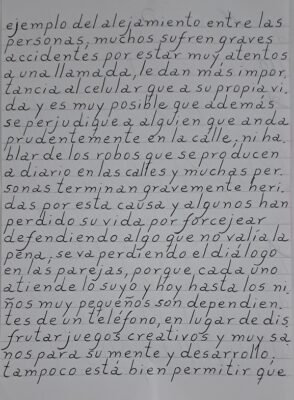 ejemplo del alejamiento entre las
personas, muchos sufren graves
accidentes por estar muy atentos
a una llamada, le dan más impor
tancia al celular que a su propia vi.
da y es muy posible que además
se perjudique a alguien que anda
prudentemente en la calle, ni ha.
blar de los robos que se producen
a diario en las calles y muchas per.
sonas terminan gravemente heri.
das por esta causa y algunos han
perdido su vida por forcejear
defendiendo algo que no valía la
pena; se va perdiendo el diálogo
en las parejas, porque cada uno
atiende lo suyo y hoy hasta los ni.
ños muy pequeños son dependien.
tes de un teléfono, en lugar de dis.
frutar juegos creativos y muy sa
nos para su mente y desarrollo;
tampoco está bien permitir que